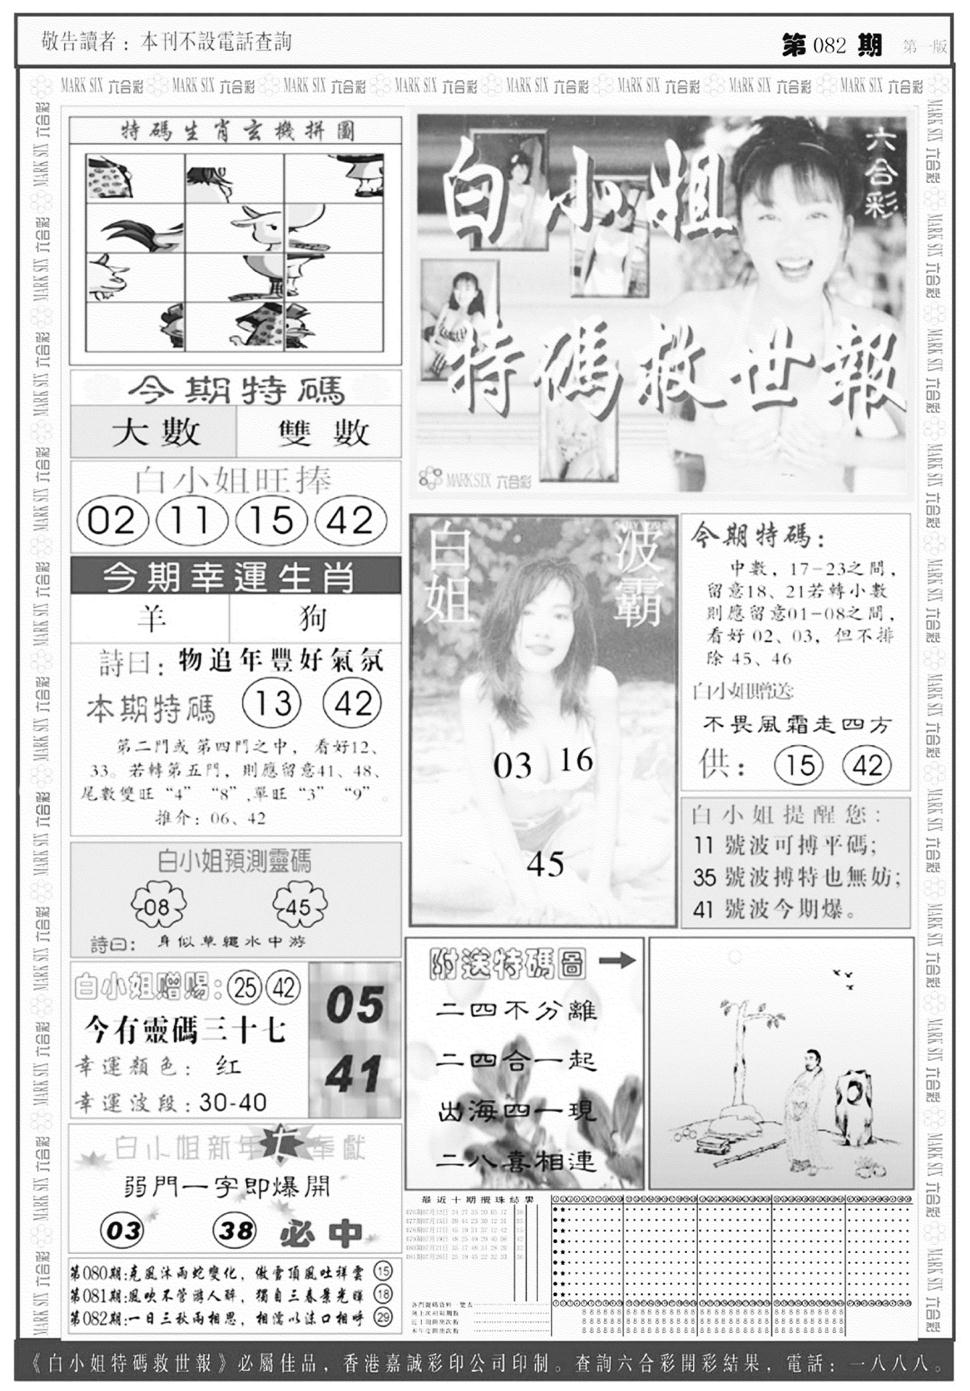 敬告讀者：本刊不設電話查詢
第082期 第一版
MARK SIX 六合彩 MARK SIX 六合彩 MARK SIX 六合彩 MARK SIX 六合彩 MARK SIX 六合彩 MARK SIX 六合彩 MARK SIX 六合彩 MARK SIX 六合彩
特碼生肖玄機拼圖
六合彩
白小姐
特碼救世報
MARK SIX 六合彩
今期特碼
大數 雙數
白小姐旺捧
02 11 15 42
今期幸運生肖
羊 狗
詩曰：物追年豐好氣氛
本期特碼 13 42
第二門或第四門之中，看好12、
33。若轉第五門，則應留意41、48、
尾數雙旺“4”“8”,單旺“3”“9”。
推介：06、42
白小姐預測靈碼
08 45
詩曰：身似草繩水中游
白小姐贈賜：25 42
今有靈碼三十七
幸運顏色：红
幸運波段：30-40
05
41
白小姐新年 奉獻
弱門一字即爆開
03 38 必中
第080期:克風沐雨蛇變化，傲雪頂風吐祥雲 15
第081期:風吹不管游人醉，獨自三春景光輝 18
第082期:一日三秋兩相思，相濡以沫口相呼 29
白姐
波霸
03 16
45
今期特碼：
中數，17-23之間，
留意18、21若轉小數
則應留意01-08之間，
看好02、03，但不排
除45、46
白小姐贈送:
不畏風霜走四方
供：15 42
白小姐提醒您：
11號波可搏平碼；
35號波搏特也無妨；
41號波今期爆。
附送特碼圖
二四不分離
二四合一起
出海四一現
二八喜相連
最近十期攪珠結果
《白小姐特碼救世報》必屬佳品，香港嘉誠彩印公司印制。查詢六合彩開彩結果，電話：一八八八。